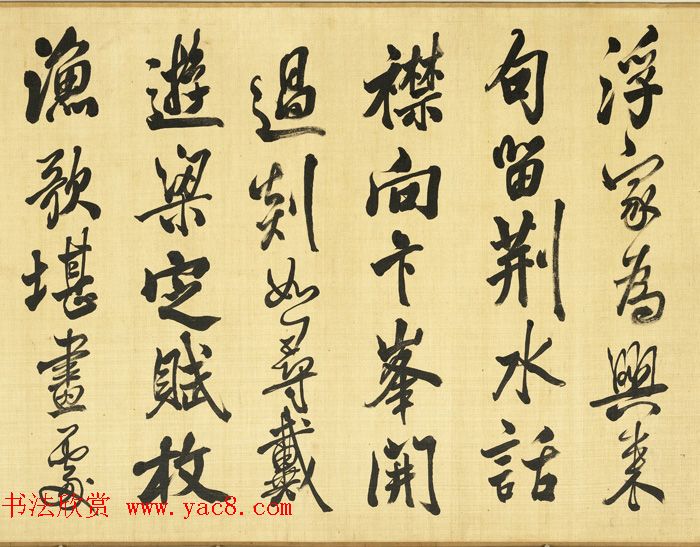 浮家為興来
句留荆水話
襟向卞峯開
過剡如尋戴
遊梁定賦枚
漁歌堪畫處
书法欣赏 www.yac8.com